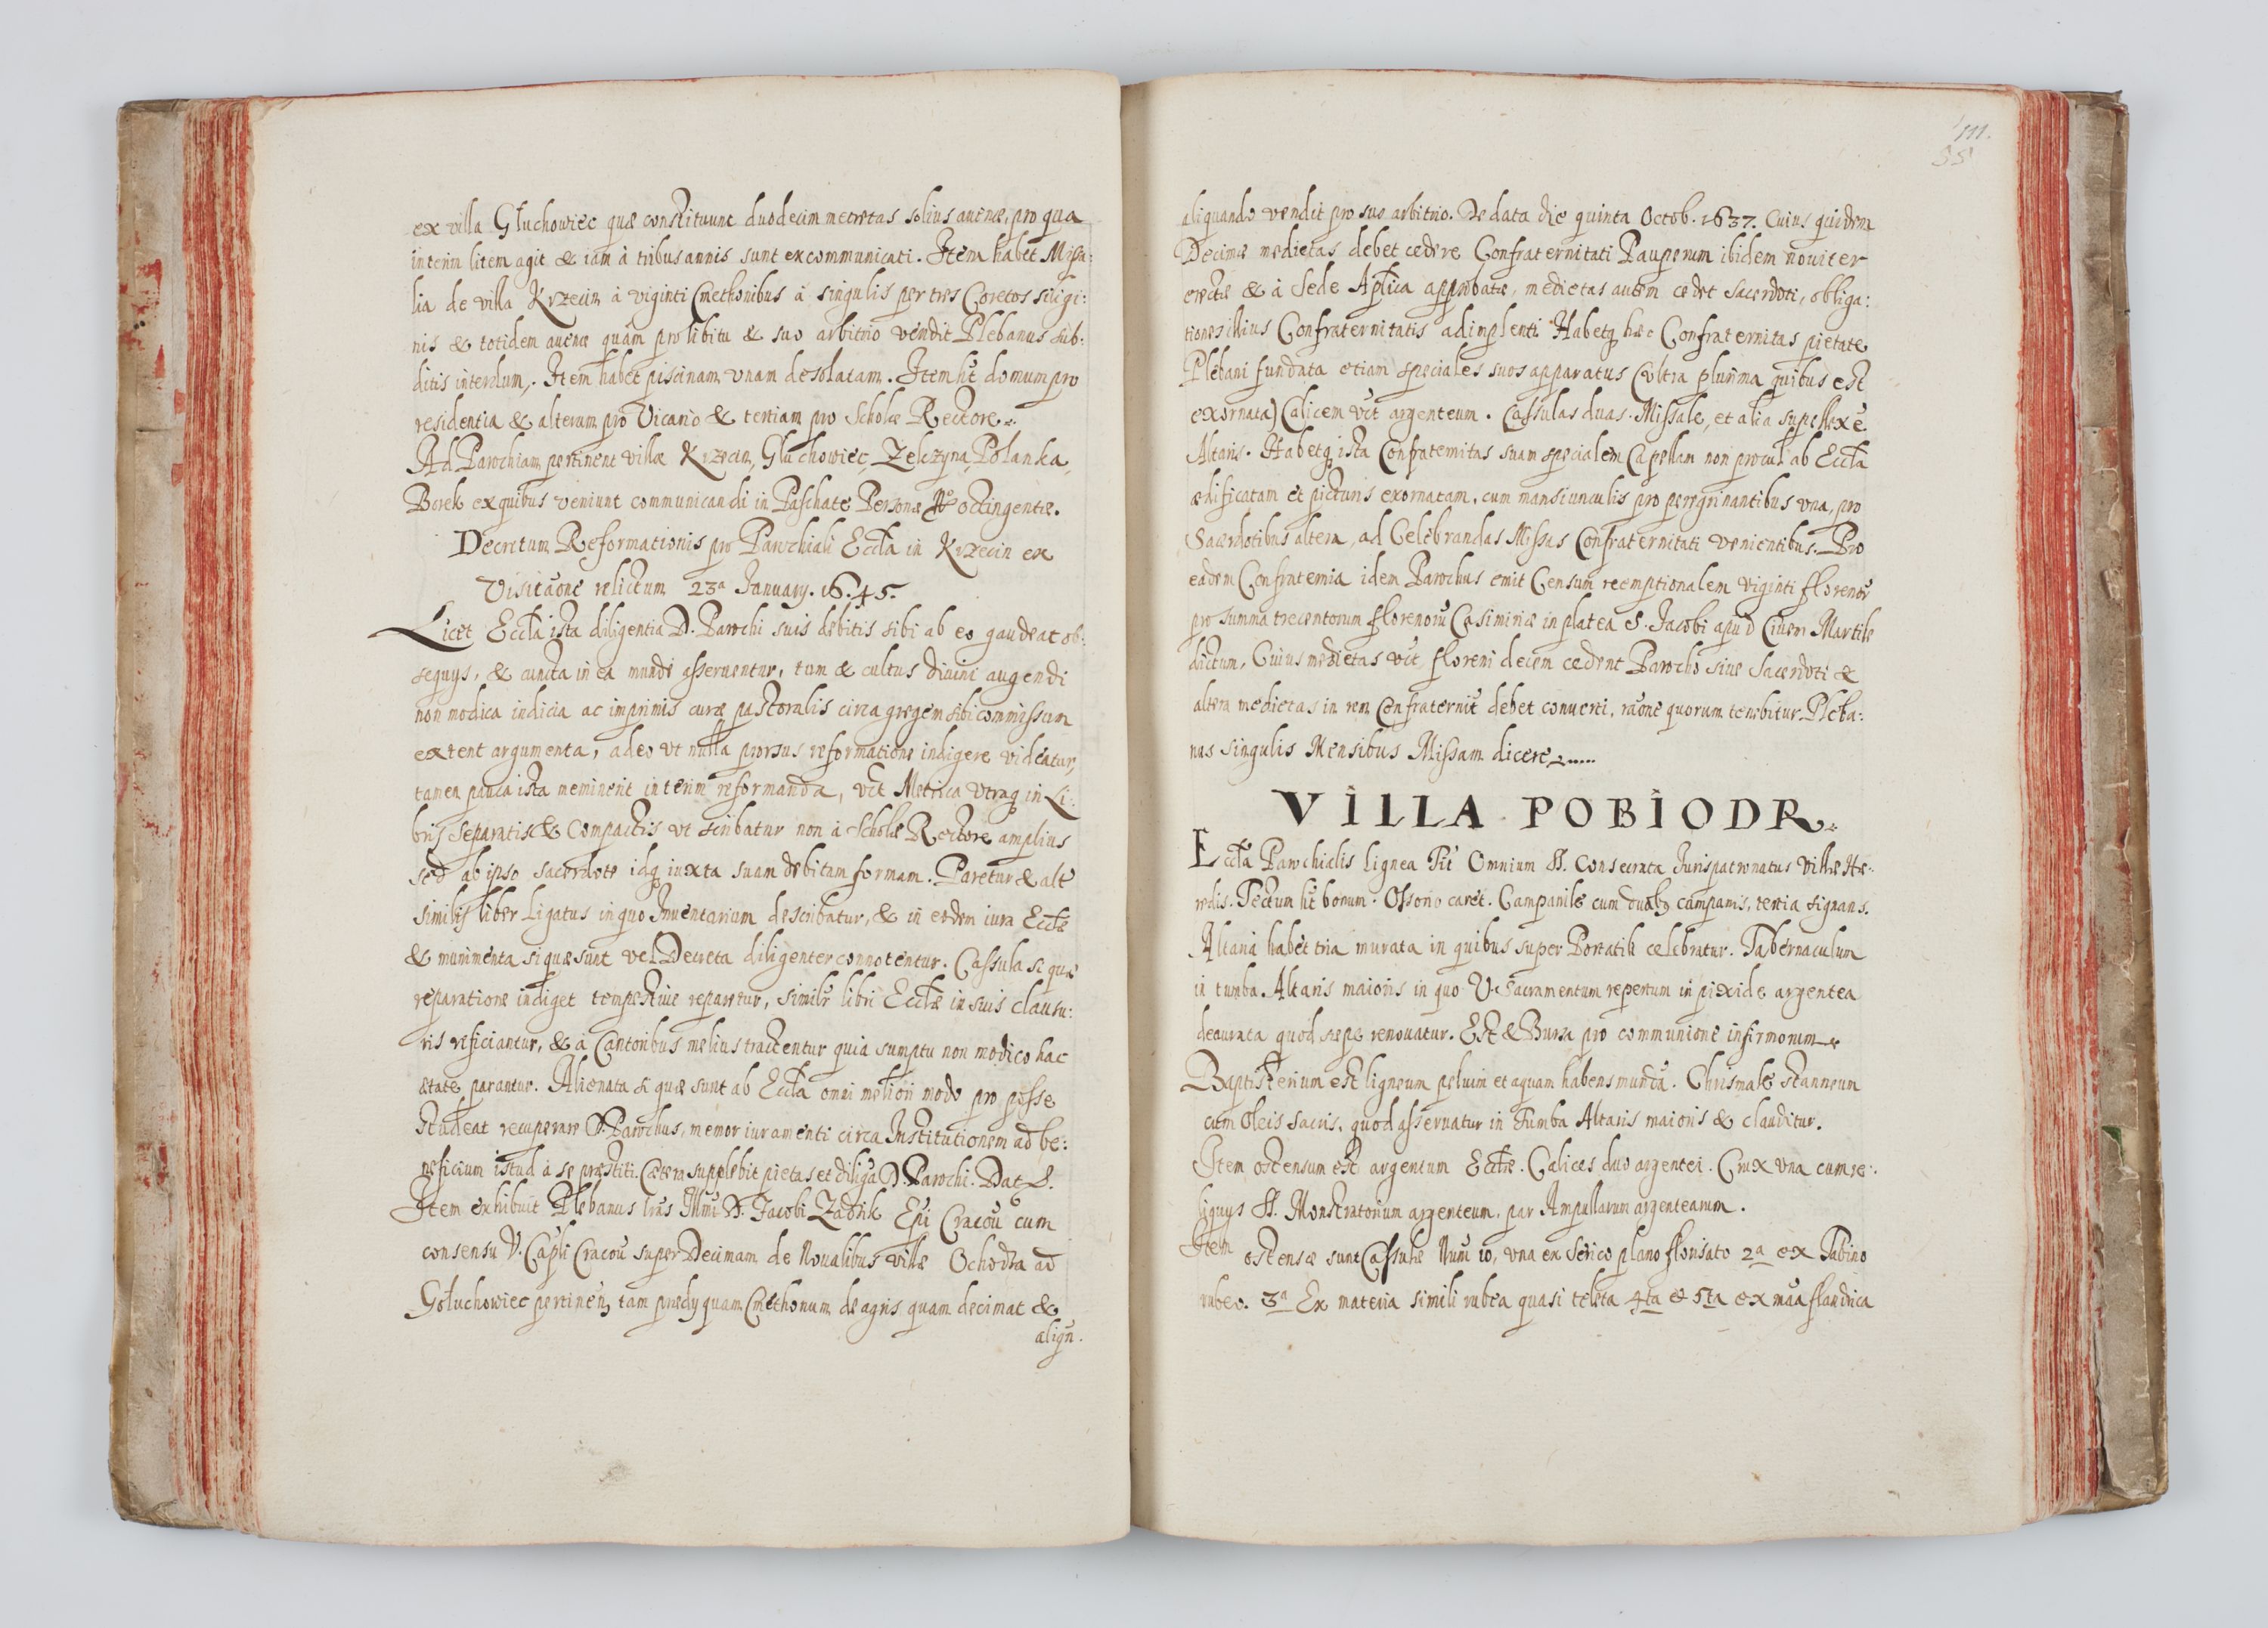 ex villa Głuchowiec quæ constituunt duodecim metretas solius auenæ, pro qua
interim litem agit & iam à tribus annis sunt excommunicati. Item habet Missa:
lia de villa Krzecin à viginti Cmethonibus à singulis per tres Coretos siligi:
nis & totidem auenæ quam pro libitu & suo arbitrio vendit Plebanus sub:
ditis interdum. Item habet piscinam vnam desolatam. Item ht domum pro
residentia & alteram pro Vicario & tertiam pro Scholæ Rectore.
Ad Parochiam pertinent villæ Krzecin, Głuchowiec, Zelczyna, Polanka,
Borek ex quibus veniunt communicandi in Paschate Personæ No octingentæ.
Decretum Reformationis pro Parochiali Eccla in Krzecin ex
Visitaōne relictum 23a January. 16.45.
Licet Eccla ista diligentia D. Parochi suis debitis sibi ab eo gaudeat ob:
sequys, & cuncta in ea munde asseruentur, tum & cultus diuini augendi
non modica indicia ac imprimis curæ pastoralis circa gregem sibi commissum
extent argumenta, adeo vt nulla prorsus reformatione indigere videatur,
tamen pauca ista meminerit interim reformanda, vct Metrica vtraq in Li:
bris separatis & compactis vt scribatur non à Scholæ Rectore amplius
sed ab ipso sacerdote idq iuxta suam debitam formam. Paretur & alt
similis liber ligatus in quo Inuentarium describatur, & in eodem iura Ecclæ
& munimenta si quæ sunt vel Decreta diligenter connotentur. Cassula si quæ
reparatione indiget tempestiue reparetur, similr libri Ecclæ in suis clausu:
ris reficiantur, & à Cantoribus melius tractentur quia sumptu non modico hac
ætate parantur. Alienata si quæ sunt ab Eccla omni meliori modo pro posse
studeat recuperare D. Parochus, memor iuramenti circa Institutionem ad be:
neficium istud à se præstiti. Cætera supplebit pietas et diliga D. Parochi. Dat S.
Item exhibuit Plebanus lras Illmi D. Jacobi Zadzik Epi Cracou cum
consensu V. Capli Cracou super Decimam de Noualibus villæ Ochodza ad
Gołuchowiec pertinen, tam predy quam Cmethonum de agris quam decimat &
aliqn.
111.
55
aliquando vendit pro suo arbitrio. De data die quinta Octob. 1637. Cuius quidem
Decimæ medietas debet cedere Confraternitati Pauperum ibidem nouiter
erectæ & à Sede Aplica approbatæ, medietas autem cedet Sacerdoti, obliga:
tiones illius Confraternitatis adimplenti. Habetq hæc Confraternitas pietate
Plebani fundata etiam speciales suos apparatus (vltra plurima quibus est
exornata) Calicem vct argenteum. Cassulas duas. Missale, et alia supellex ē
Altaris. Habetq ista Confraternitas suam specialem Capellam non procul ab Eccla
ædificatam et picturis exornatam, cum mansiunculis pro peregrinantibus vna, pro
Sacerdotibus altera, ad Celebrandas Missas Confraternitati venientibus. Pro
eadem Confraternia idem Parochus emit Censum reemptionalem viginti florenos
pro summa trecentorum florenorū Casimiriæ in platea S. Jacobi apud Ciuem Martile
dictum, Cuius medietas vct floreni decem cedent Parocho siue Sacerdoti &
altera medietas in rem Confraternit debet conuerti, raōne quorum tenebitur Pleba:
nus singulis Mensibus Missam dicere.
VILLA POBIODR.
Eccla Parochialis lignea Tit Omnium SS. Consecrata Jurispatronatus Villæ Hæ:
redis. Tectum ht bonum. Ossorio caret. Campanile cum duabq campanis, tertia signans.
Altaria habet tria murata in quibus super Portatili celebratur. Tabernaculum
in tumba Altaris maioris in quo V. Sacramentum repertum in pixide argentea
deaurata quod sæpe renouatur. Est & Bursa pro communione infirmorum.
Baptisterium est ligneum peluim et aquam habens mundā. Chrismale stanneum
cum Oleis Sacris, quod asseruatur in Tumba Altaris maioris & clauditur.
Item ostensum est argentum Ecclæ. Calices duo argentei. Crux vna cum re:
liquys SS. Monstratorium argenteum, par Ampullarum argentearum.
Item ostensæ sunt Cassulæ Num 10, vna ex Serico plano florisato 2a ex Tabino
rubeo. 3a Ex materia simili rubea quasi teleta 4ta & 5ta ex māa flandrica